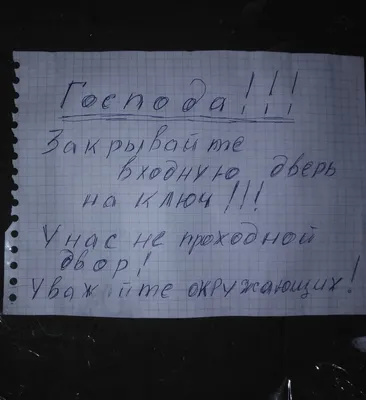 Господа!!!
Закрывайте
входную дверь
на ключ!!!
У нас не проходной
двор!
Уважайте окружающих!